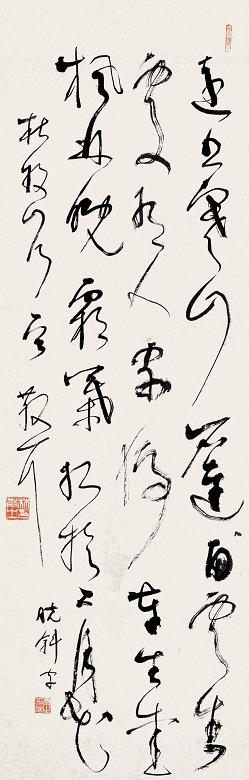 遠上寒山石逕白雲生
處有人家停車坐愛
楓林晚霜葉紅於二月花
杜牧山行 散耳
脱斜字